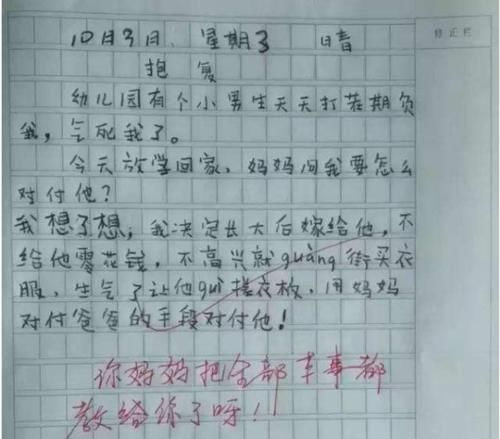 10月3日. 星期3 晴
修正栏
抱复
幼儿园有个小男生天天打茬期负
我，气死我了。
今天放学回家，妈妈问我要怎么
对付他？
我想了想，我决定长大后嫁给他，不
给他零花钱，不高兴就guàng街买衣
服，生气了让他guì搓衣板，用妈妈
对付爸爸的手段对付他！
你妈妈把全部本事都
教给你了呀！！